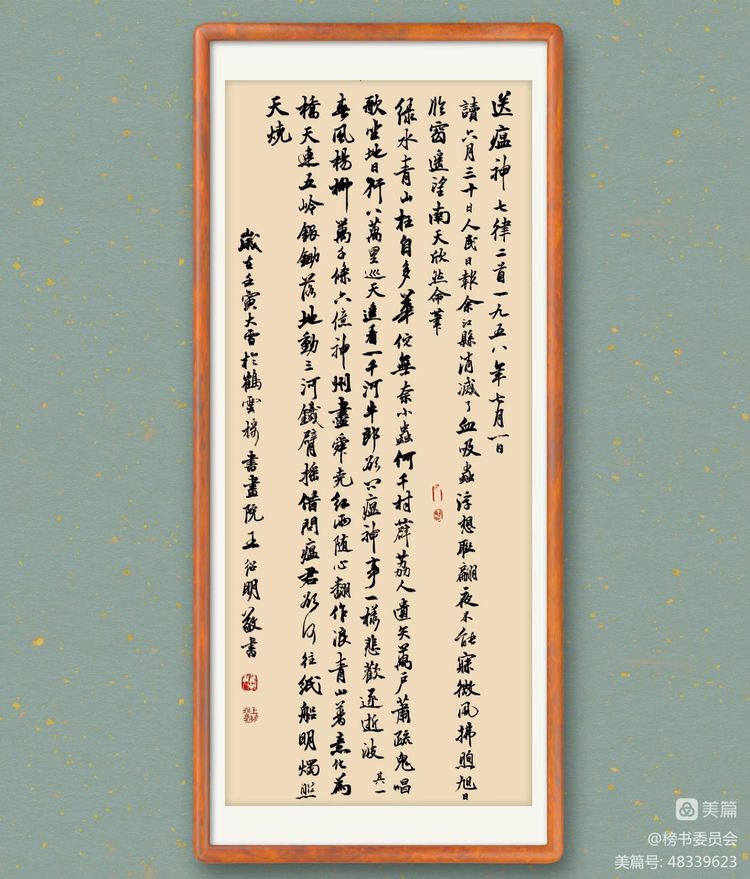 送瘟神七律二首一九五八年七月一日
讀六月三十日人民日報余江縣消滅了血吸蟲浮想聯翩夜不能寐微風拂煦旭日
臨窗遥望南天欣然命筆
绿水青山枉自多華佗無奈小蟲何千村薜荔人遺矢萬戶蕭疏鬼唱
歌坐地日行八萬里巡天遥看一千河牛郎欲问瘟神事一樣悲歡逐逝波 其一
春風楊柳萬千條六億神州盡舜堯红雨随心翻作浪青山著意化為
橋天連五岭銀鋤落地動三河鐵臂摇借問瘟君欲何往纸船明燭照
天燒
歲在壬寅大雪於鶴雲樓書畫院王紹明敬書
美篇
@榜书委员会
美篇号: 48339623